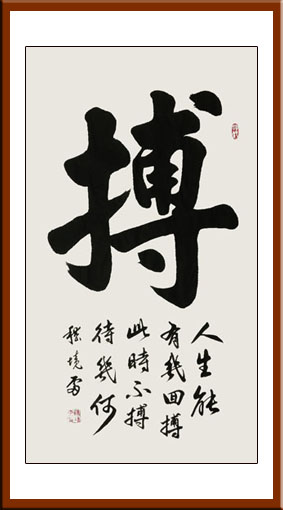 搏
人生能
有幾回搏
此時不搏
待幾何